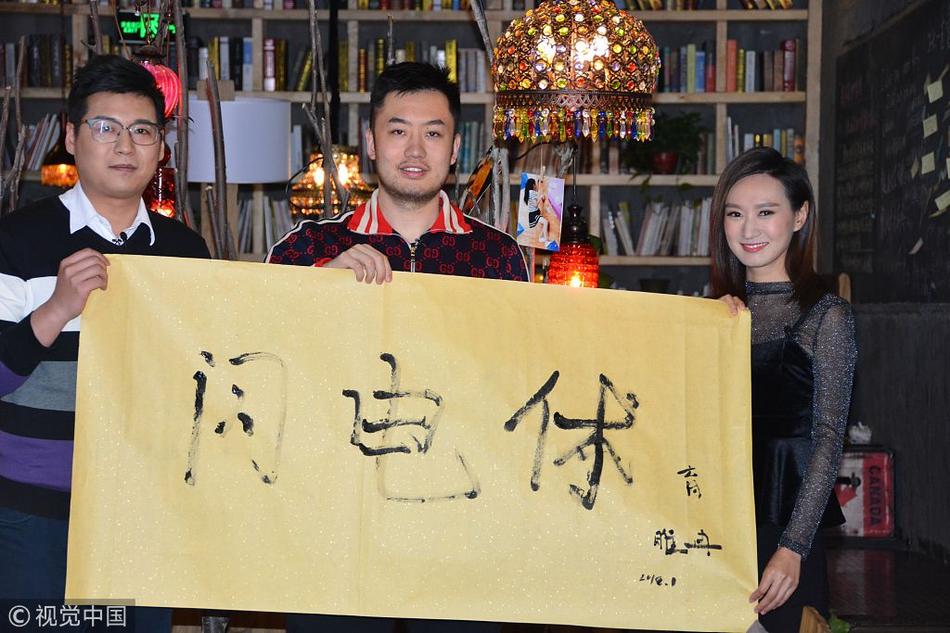 闪电体
育
睢冉
2018.1
CANADA
© 视觉中国